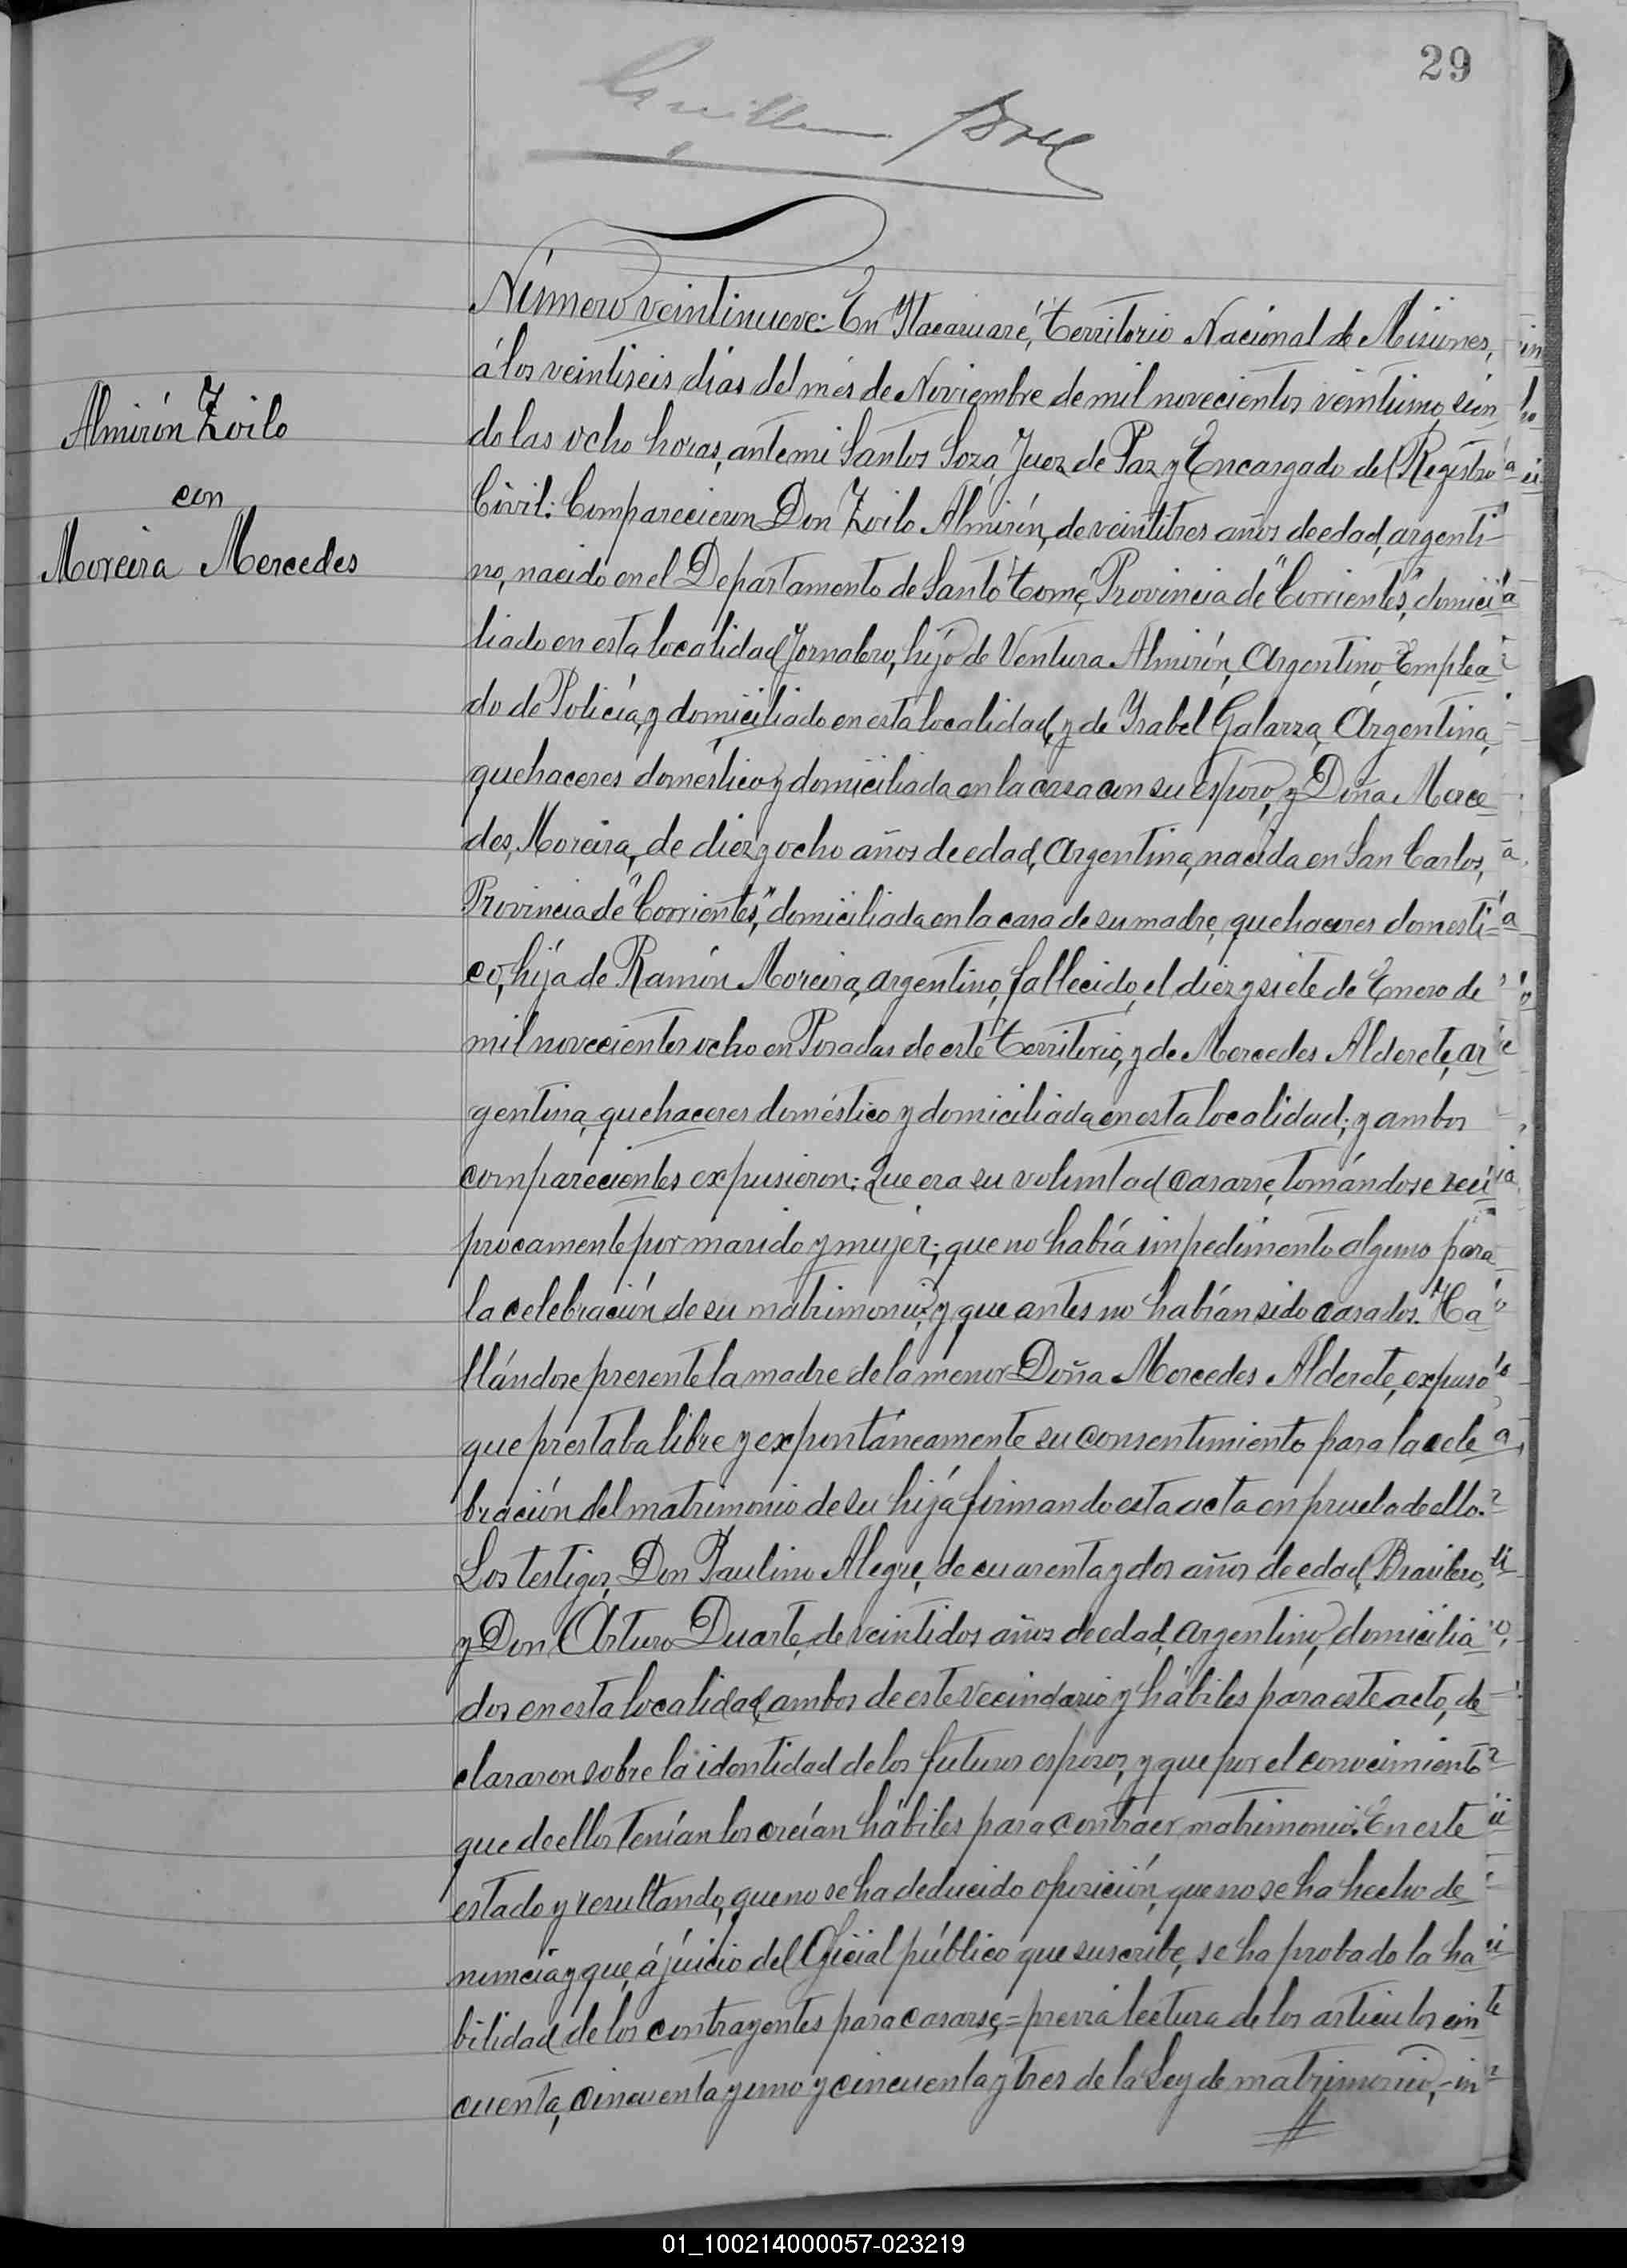 29
Número veintinueve: En "Itacaruaré," Territorio Nacional de Misiones,
á los veintiseis dias del mes de Noviembre de mil novecientos veintiuno, sien
do las ocho horas, ante mi Santos Soza, Juez de Paz y Encargado del Registro
Almirón Zoilo
con
Moreira Mercedes
Civil: Comparecieron Don Zoilo Almirón, de veintitres años de edad, argenti-
no, nacido en el Departamento de Santo Tomé, Provincia de "Corrientes", domici
liado en esta localidad, Jornalero, hijo de Ventura Almirón, Argentino, Emplea
do de Policía, y domiciliado en esta localidad, y de Ysabel Galarza, Argentina,
quehaceres doméstico y domiciliada en la casa con su esposo, y Doña Merce
des, Moreira, de diez y ocho años de edad, Argentina, nacida en San Carlos,
Provincia de "Corrientes," domiciliada en la casa de su madre, quehaceres domesti=
co, hija de Ramón Moreira, argentino, fallecido, el diez y siete de Enero de
mil novecientos ocho en Posadas de este Territorio, y de Mercedes Alderete, ar
gentina, quehaceres doméstico y domiciliada en esta localidad; y ambos
comparecientes expusieron: Que era su voluntad casarse, tomándose recí
procamente por marido y mujer; que no había impedimento alguno para
la celebración de su matrimonio; y que antes no habían sido casados. Ha
llándose presente la madre de la menor Doña Mercedes Alderete, expuso
que prestaba libre y expontáneamente su consentimiento para la cele
bración del matrimonio de su hija firmando esta acta en prueba de ello.
Los testigos, Don Paulino Alegre, de cuarenta y dos años de edad, Brasilero,
y Don Arturo Duarte, de veintidos años de edad, argentino, domicilia
dos en esta localidad, ambos de este vecindario y hábiles para este acto, de
clararon sobre la identidad de los futuros esposos, y que por el conocimiento
que de ellos tenían los creían hábiles para contraer matrimonio. En este
estado y resultando, que no se ha deducido oposición, que no se ha hecho de
nuncia y que, á juicio del Oficial público que suscribe, se ha probado la ha
bilidad de los contrayentes para casarse,= previa lectura de los articulos cin
cuenta, cincuenta y uno y cincuenta y tres de la Ley de matrimonio,- in
01_100214000057-023219